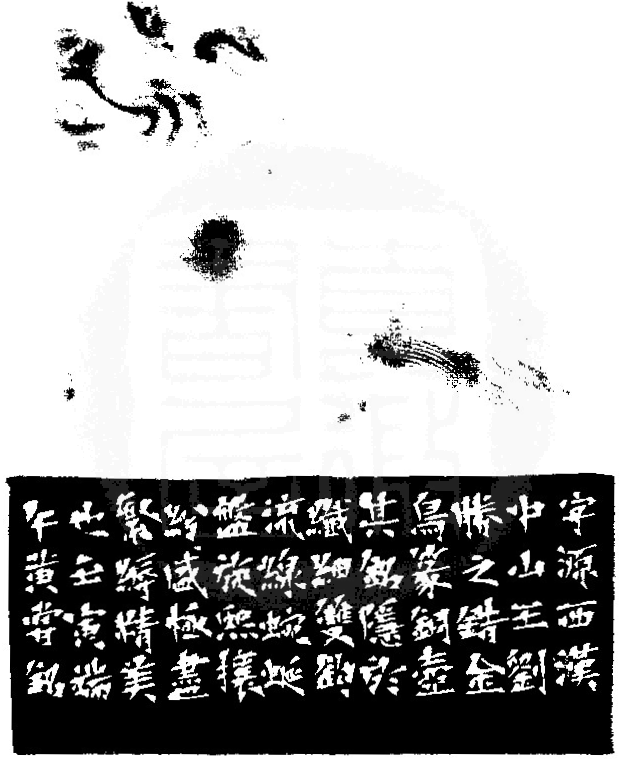 字源西漢
中山王劉
勝之錯金
鳥篆銅壺
其銘隱於
纖細雙鉤
流線蜿蜒
盤旋熙攘
紛極盡
繁縟精美
也壬寅端
午黃嘗銘